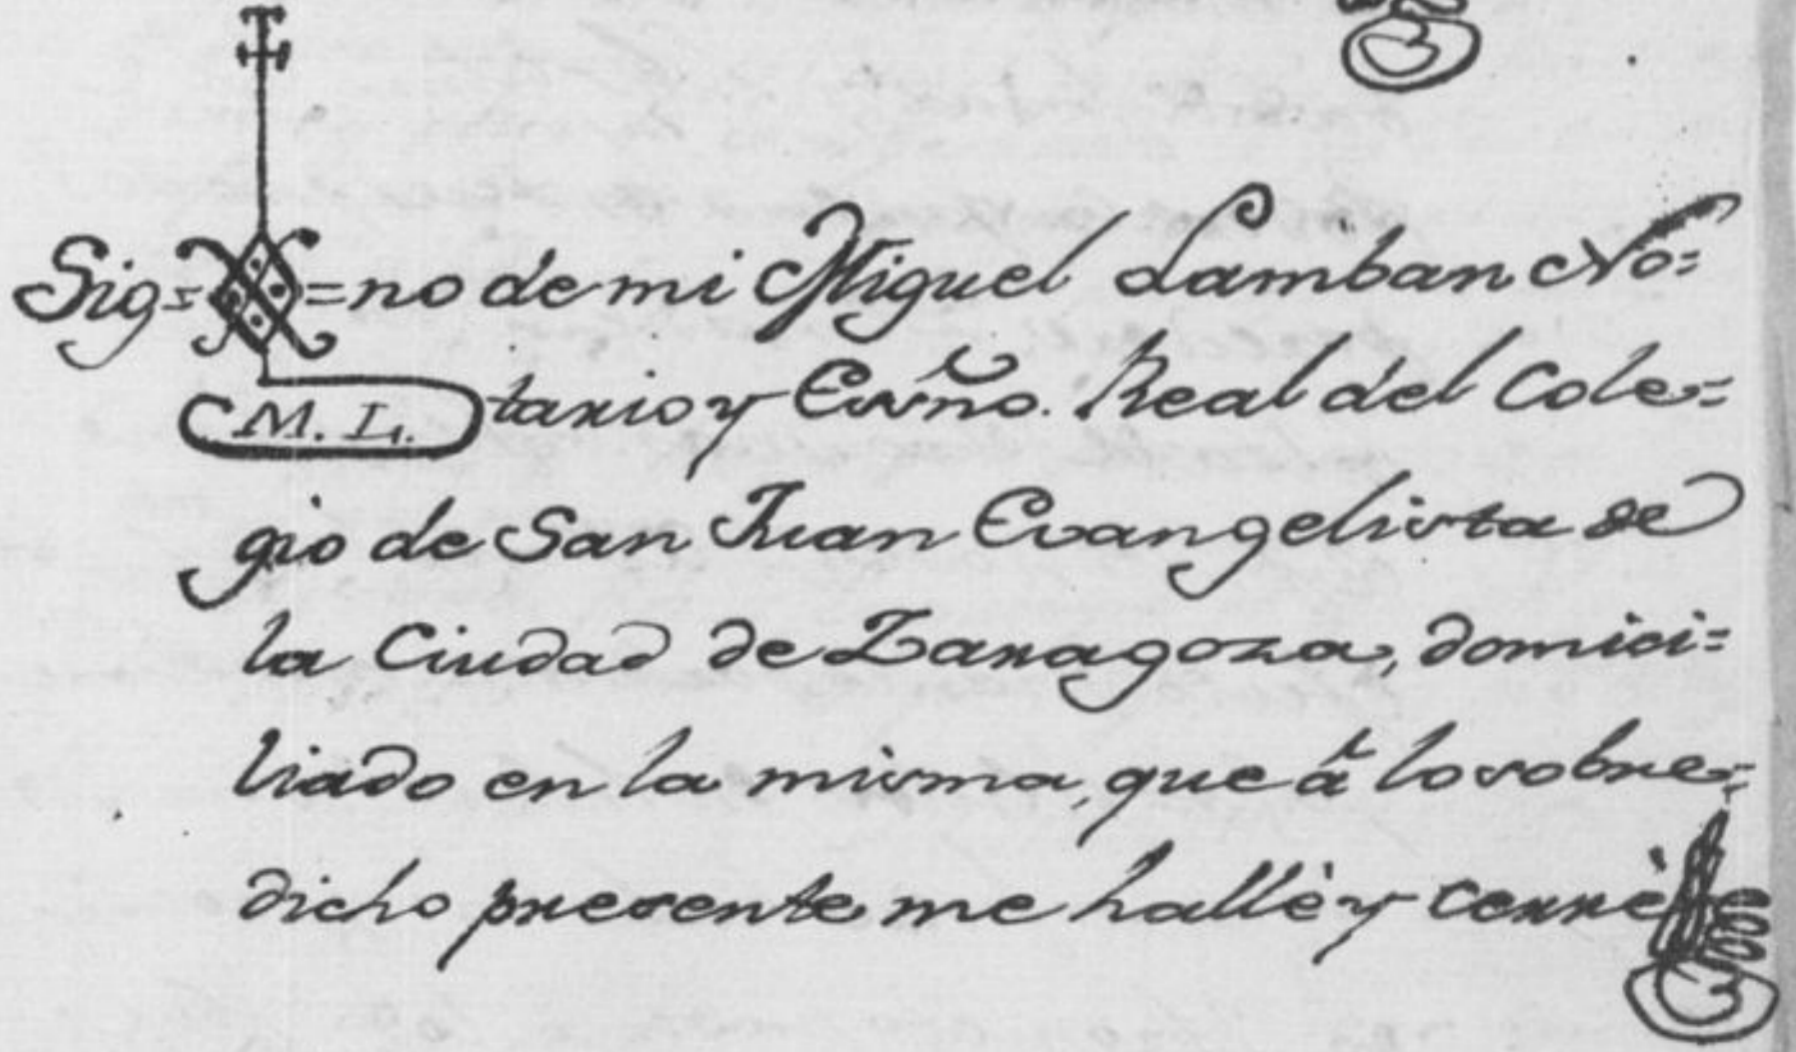 Sig= =no de mi Miguel Lamban No=
M. L.
tario y Essño. Real del Cole=
gio de San Juan Evangelista de
la Ciudad de Zaragoza, domici=
liado en la misma, que â lo sobre=
dicho presente me hallè y cerrè